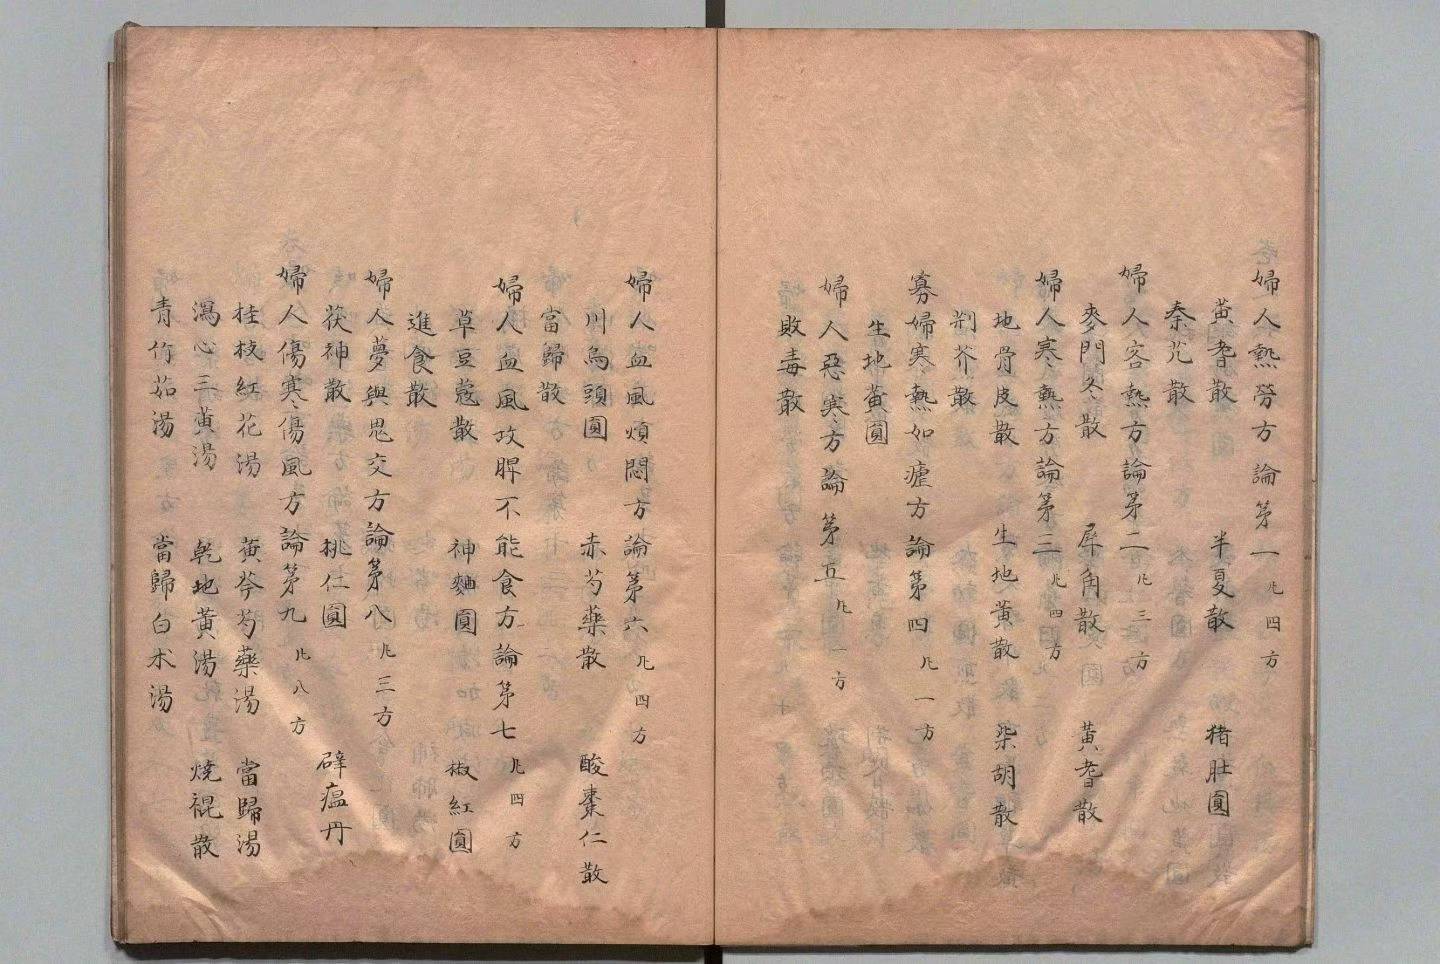 婦人熱勞方論第一 凡四方
黃耆散 半夏散 猪肚圓
秦艽散
婦人客熱方論第二 凡三方
麥門冬散 犀角散 黃耆散
婦人寒熱方論第三 凡四方
地骨皮散 生地黃散 柴胡散
荆芥散
寡婦寒熱如瘧方論第四 凡一方
生地黃圓
婦人惡寒方論第五 凡一方
敗毒散
婦人血風煩悶方論第六 凡四方
川烏頭圓 赤芍藥散 酸棗仁散
當歸散
婦人血風攻脾不能食方論第七 凡四方
草豆蔻散 神麯圓 椒紅圓
進食散
婦人夢與鬼交方論第八 凡三方
茯神散 桃仁圓 辟瘟丹
婦人傷寒傷風方論第九 凡八方
桂枝紅花湯 黃芩芍藥湯 當歸湯
瀉心三黃湯 乾地黃湯 燒裩散
青竹茹湯 當歸白朮湯